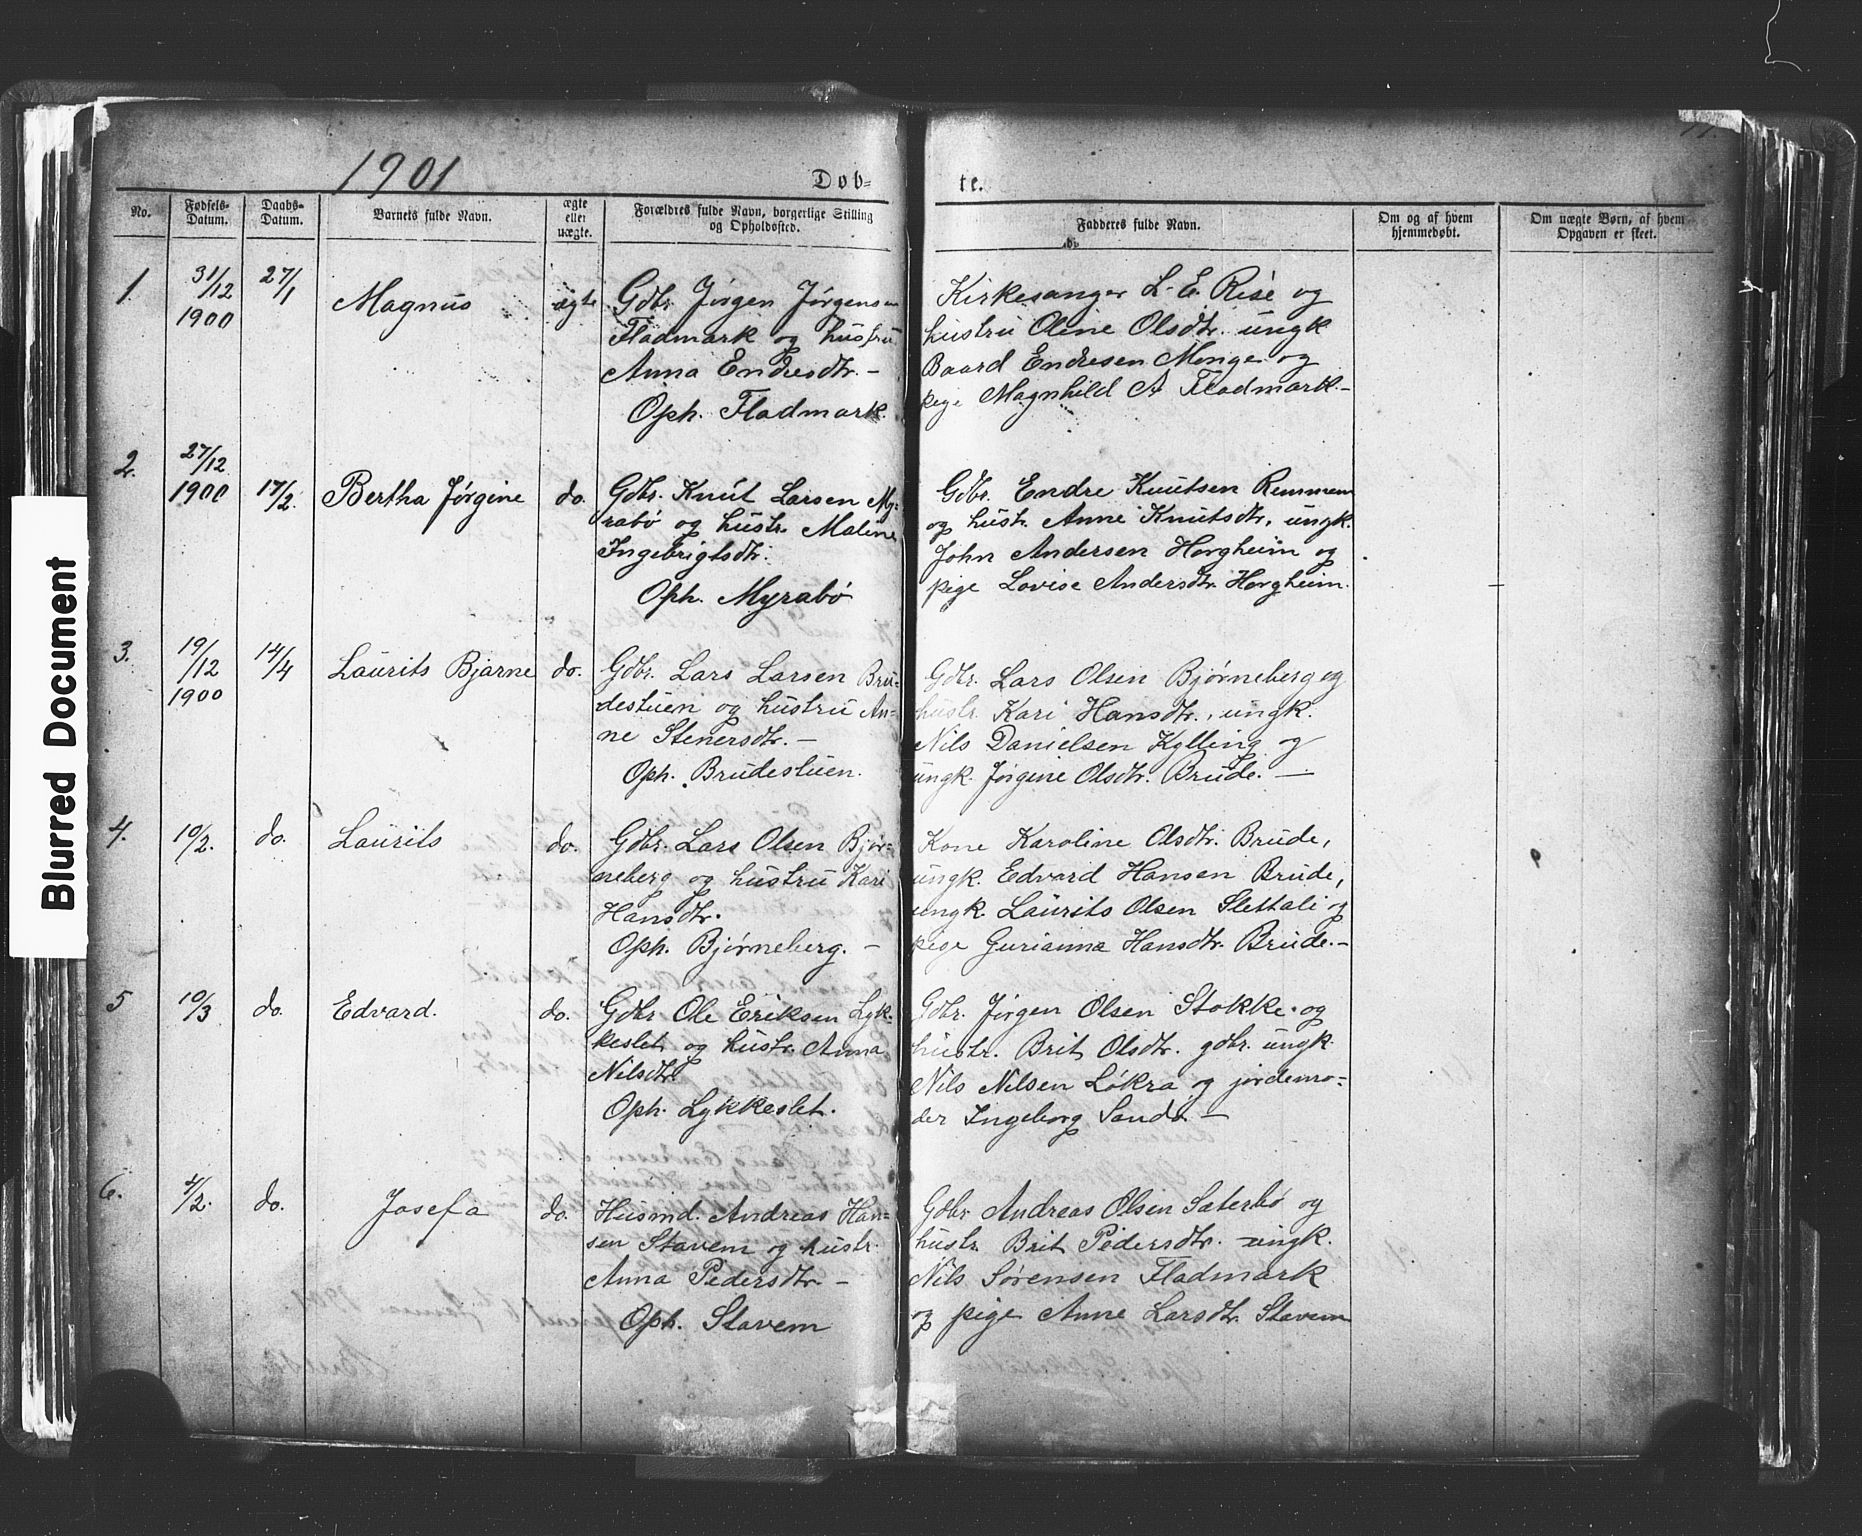 1901
Døb=
te.
No.
Fødsels-
Datum.
Daabs-
Datum.
Barnets fulde Navn.
ægte
eller
uægte.
Forældres fulde Navn, borgerlige Stilling
og Opholdssted.
Fadderes fulde Navn.
Om og af hvem
hjemmedøbt.
Om uægte Børn, af hvem
Opgaven er skeet.
1.
31/12
1900
27/1
Magnus
ægte
Gdbr. Jørgen Jørgensen
Fladmark og hustru
Anna Endresdtr. –
Oph. Fladmark.
Kirkesanger L. E. Rise og
hustru Oline Olsdtr. ungk
Baard Endresen Monge og
pige Magnhild A Fladmark –
2.
27/12
1900
17/2.
Bertha Jørgine
do.
Gdbr. Knut Larsen My-
rabø og hustr. Maline
Ingebrigtsdtr.
Oph. Myrabø
Gdbr. Endre Knutsen Remmem
og hustr. Anne Knutsdtr, ungk.
John Andersen Horgheim og
pige Lovise Andersdtr. Horgheim.
3.
19/12
1900
14/4
Laurits Bjarne
do.
Gdbr. Lars Larsen Bru-
destuen og hustru An-
ne Stenersdtr. –
Oph. Brudestuen.
Gdbr. Lars Olsen Bjørneberg og
hustr. Kari Hansdtr., ungk.
Nils Danielsen Kylling og
ungk. Jørgine Olsdtr. Brude. –
4.
10/2.
do.
Laurits
do.
Gdbr. Lars Olsen Bjør-
neberg og hustru Kari
Hansdtr.
Oph. Bjørneberg. –
Kone Karoline Olsdtr. Brude,
ungk. Edvard Hansen Brude,
ungk. Laurits Olsen Slettali og
pige Gurianna Hansdtr. Brude. –
5
10/3
do.
Edvard.
do.
Gdbr Ole Eriksen Lyk-
keslet og hustr. Anna
Nilsdtr.
Oph. Lykkeslet.
Gdbr. Jørgen Olsen Stokke og
hustr. Brit Olsdtr. gdbr. ungk.
Nils Nilsen Løkra og jordemo=
der Ingeborg Sande –
6.
4/2.
do.
Josefa
do.
Husmd. Andreas Han=
sen Stavem og hustr.
Anna Pedersdtr –
Oph. Stavem
Gdbr Andreas Olsen Sæterbø og
hustr. Brit Pedersdtr. ungk.
Nils Sørensen Fladmark
og pige Anne Larsdtr. Stavem
Blurred Document